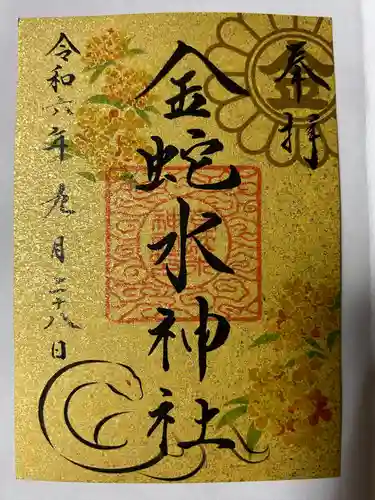 奉拝
金蛇水神社
令和六年九月二十八日
金